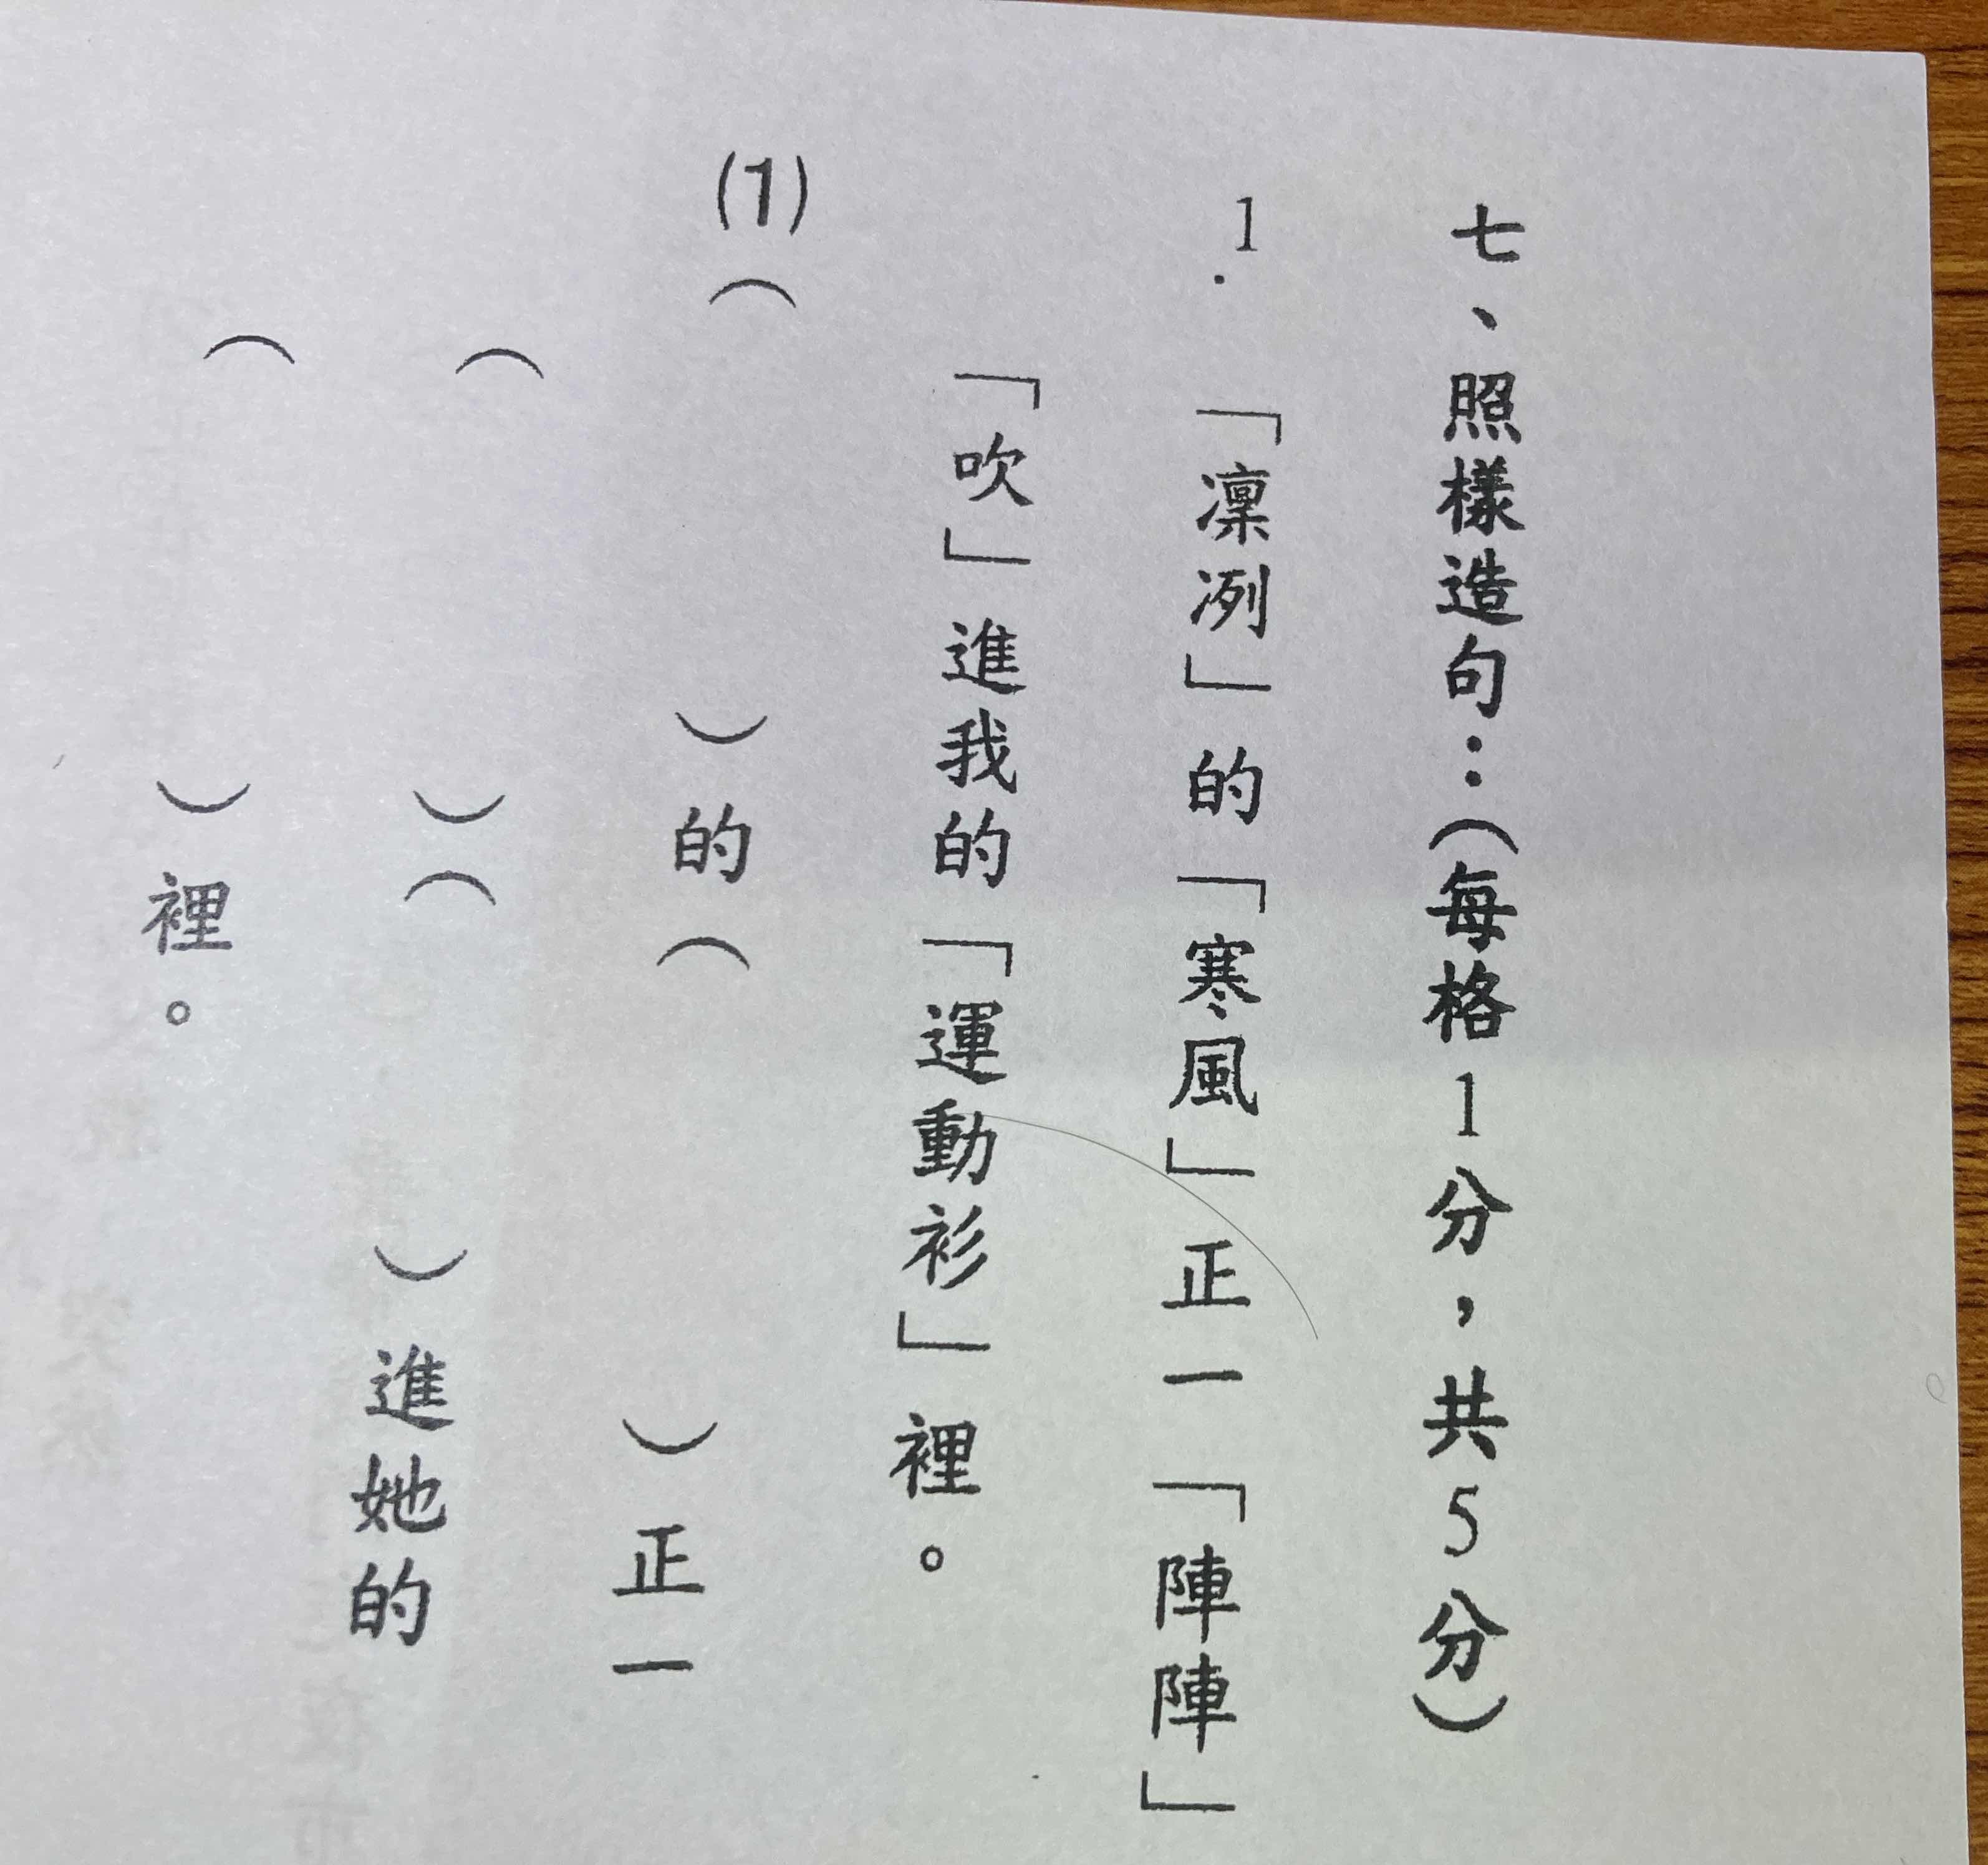 七、照樣造句：(每格1分，共5分)
1. 「凜冽」的「寒風」正一「陣陣」
「吹」進我的「運動衫」裡。
(1)(　　　)的(　　　)正一
(　　　)(　　　)進她的
(　　　)裡。